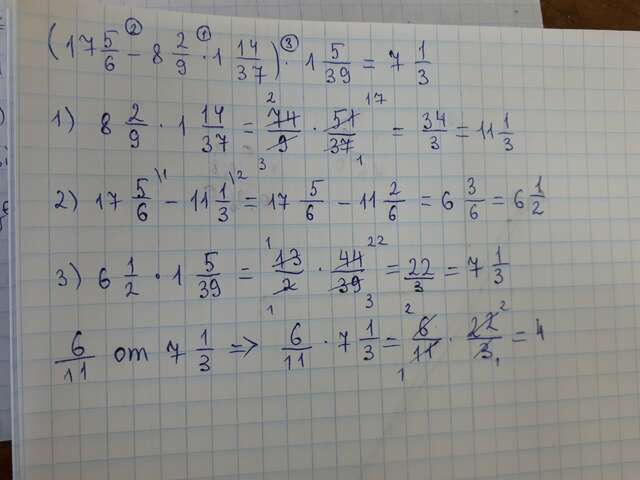 (17 5/6 - 8 2/9 · 1 14/37) · 1 5/39 = 7 1/3
1) 8 2/9 · 1 14/37 = 74/9 · 51/37 = 34/3 = 11 1/3
2) 17 5/6 - 11 1/3 = 17 5/6 - 11 2/6 = 6 3/6 = 6 1/2
3) 6 1/2 · 1 5/39 = 13/2 · 44/39 = 22/3 = 7 1/3
6/11 от 7 1/3 => 6/11 · 7 1/3 = 6/11 · 22/3 = 4